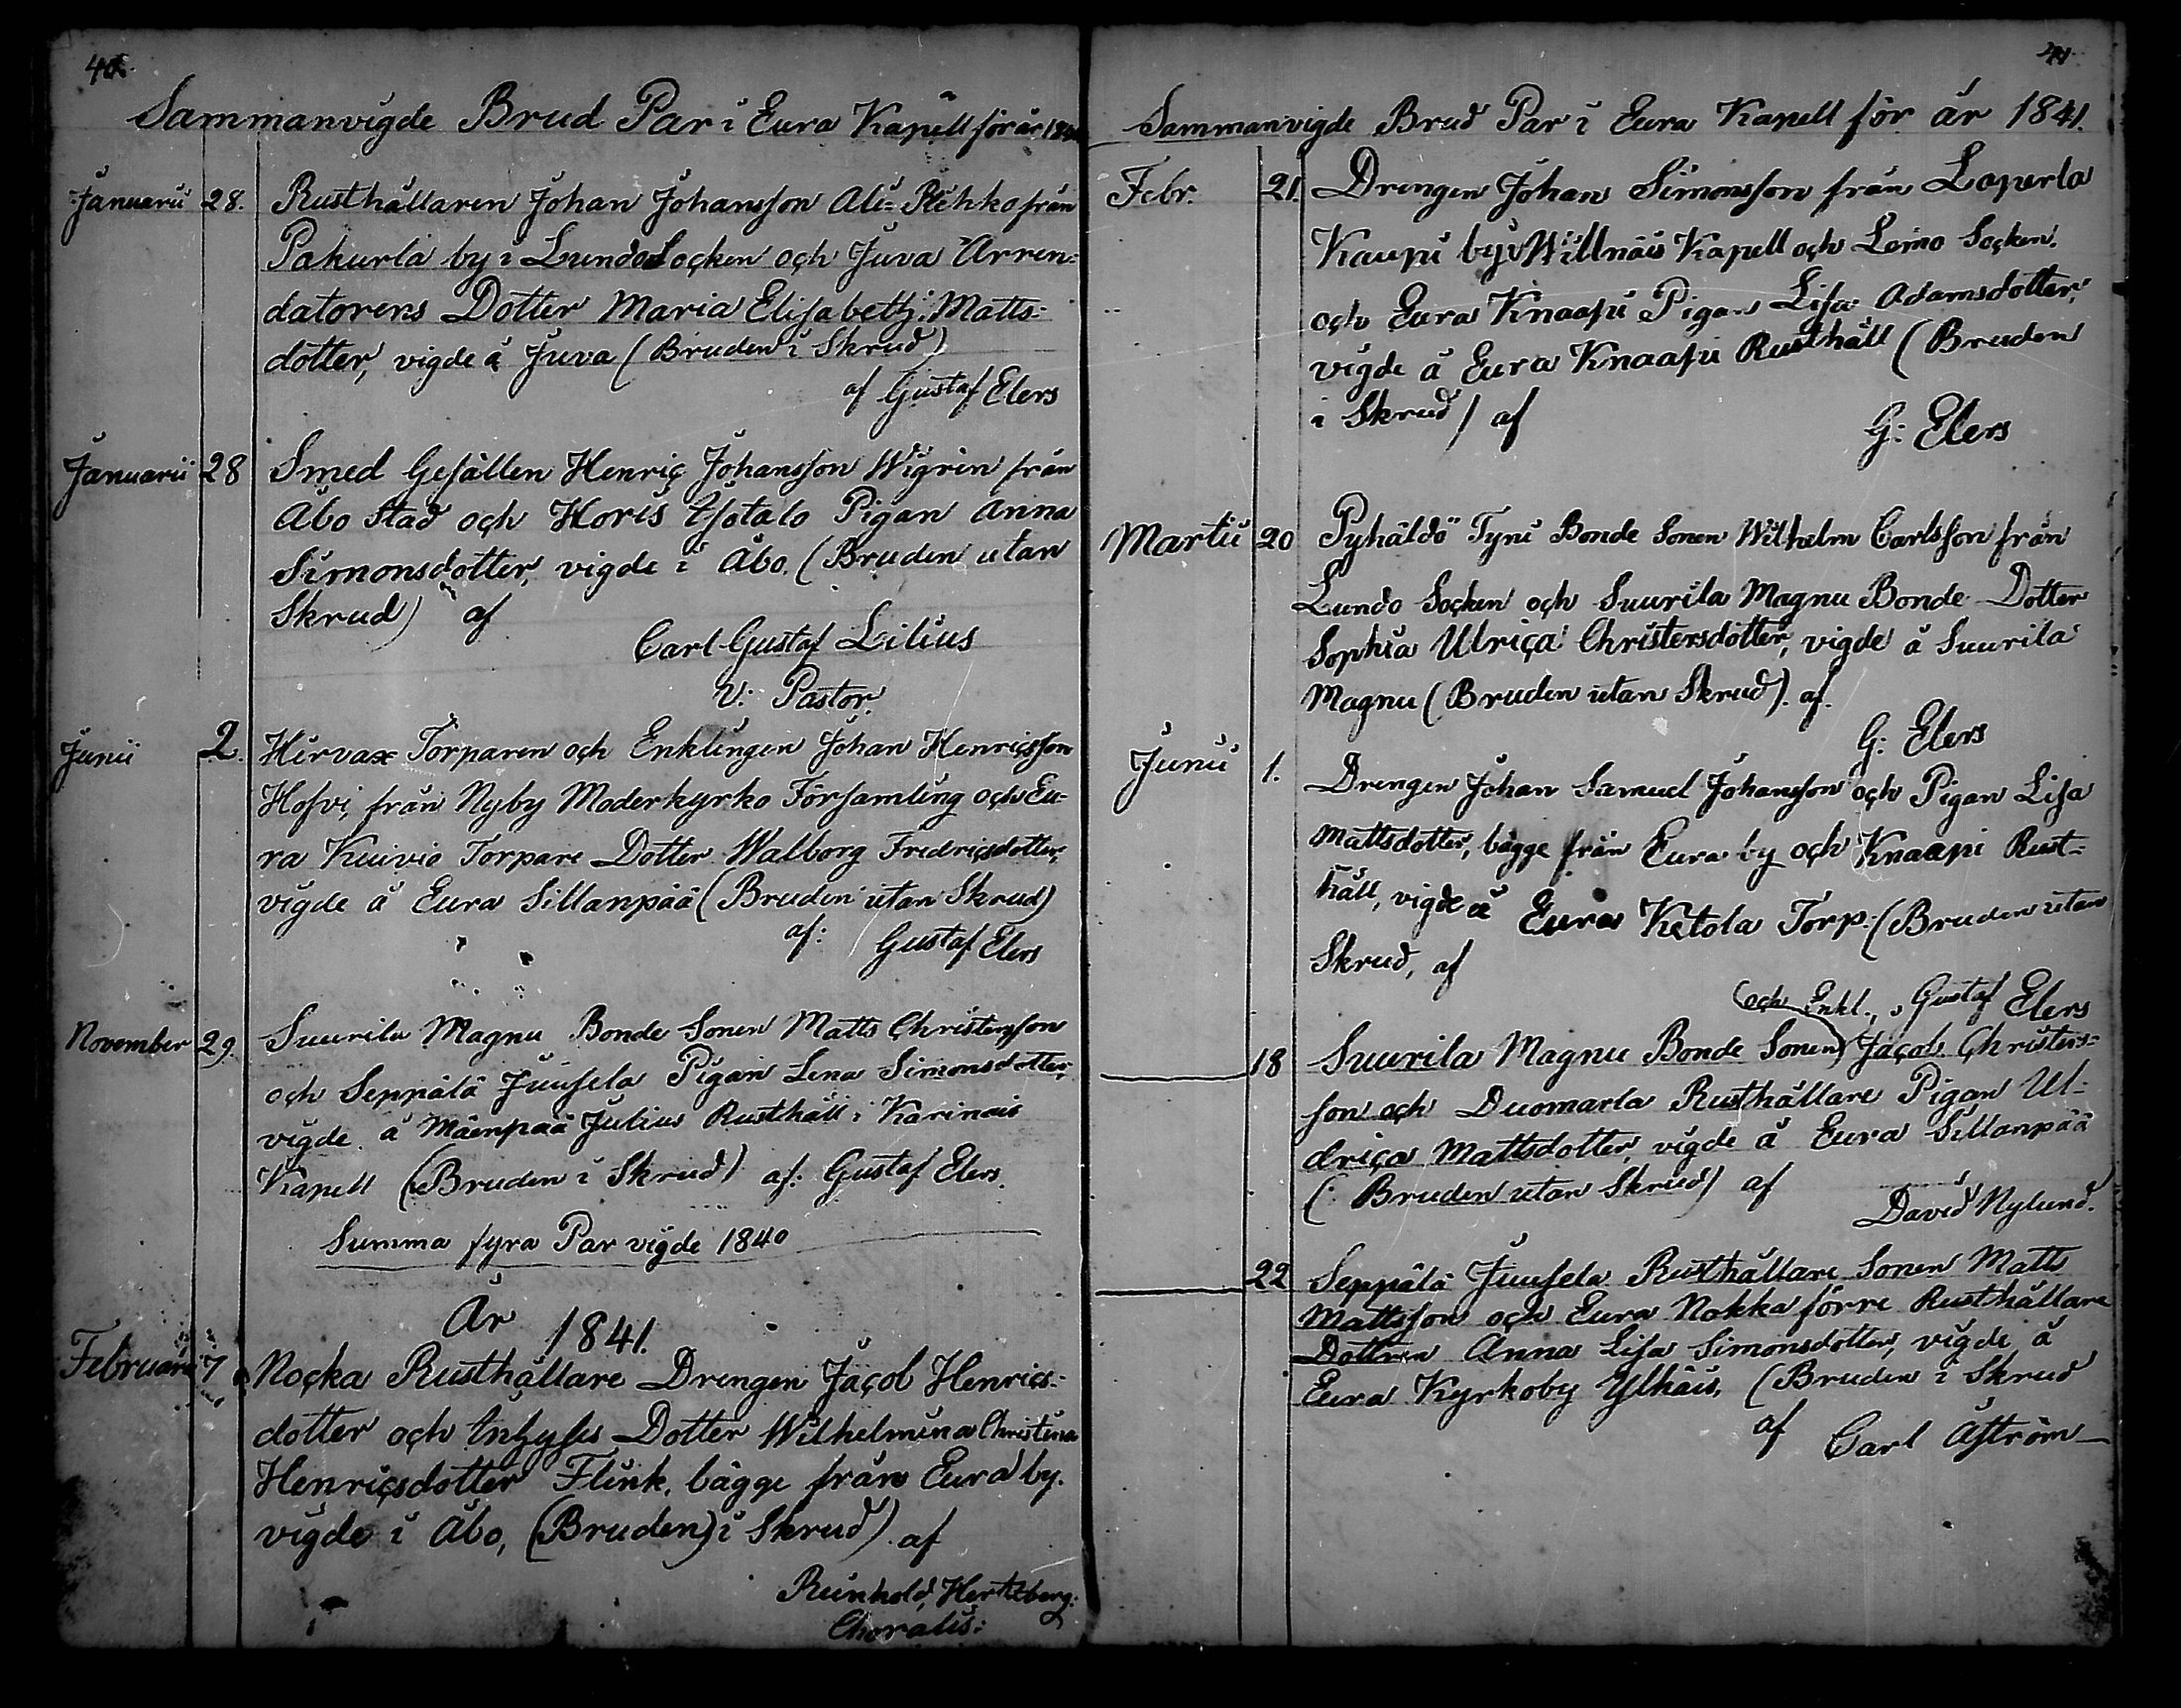 40.
Sammanvigde Brud Par i Eura Kapell för år 1840
Januarii 28. Rusthållaren Johan Johansson Ali-Rehko från
Pakurla by i Lundo Socken och Juva Arren-
datorens Dotter Maria Elisabeth: Matts-
dotter, vigde å Juva (Bruden i Skrud)
af Gustaf Elers
Januarii 28 Smed Gesällen Henric Johansson Wigrén från
Åbo Stad och Horis Isotalo Pigan Anna
Simonsdotter, vigde i Åbo. (Bruden utan
Skrud) af
Carl Gustaf Lilius
V: Pastor.
Junii 2. Hirvax Torparen och Enklingen Johan Henricsson
Hofvi, från Nyby Moderkyrko Församling och Eu-
ra Kuivio Torpare Dotter Walborg Fredricsdotter,
vigde å Eura Sillanpää (Bruden utan Skrud)
af: Gustaf Elers
November 29. Suurila Magnu Bonde Sonen Matts Christersson
och Seppälä Juusela Pigan Lena Simonsdotter,
vigde å Mäenpää Julius Rusthåll i Karinais
Kapell (Bruden i Skrud) af: Gustaf Elers.
Summa fyra Par vigde 1840
År 1841.
Februarii 7 Nocka Rusthållare Drengen Jacob Henrics-
dotter och Inhyses Dotter Wilhelmina Christina
Henricsdotter Flink, bägge från Eura by.
vigde i Åbo, (Bruden) i Skrud) af
Reinhold Hertzberg:
Choralis:
41.
Sammanvigde Brud Par i Eura Kapell för år 1841.
Febr. 21. Drengen Johan Simonsson från Laperla
Kaupi by i Willnäs Kapell och Lemo Socken.
och Eura Knaapi Pigan Lisa Adamsdotter,
vigde å Eura Knaapi Rusthåll (Bruden
i Skrud) af
G: Elers
Martii 20 Pyhäldö Tyni Bonde Sonen Wilhelm Carlsson från
Lundo Socken och Suurila Magnu Bonde Dotter
Sophia Ulrica Christersdotter, vigde å Suurila
Magnu (Bruden utan Skrud). af.
G: Elers
Junii 1. Drengen Johan Samuel Johansson och Pigan Lisa
Mattsdotter, bägge från Eura by och Knaapi Rust-
håll, vigde å Eura Ketola Torp: (Bruden utan
Skrud, af
Gustaf Elers
och Enkl.
18 Suurila Magnu Bonde Sonen Jacob Christers-
son och Duomarla Rusthållare Pigan Ul-
drica Mattsdotter, vigde å Eura Sillanpää
(: Bruden utan Skrud) af
David Nylund.
22 Seppälä Juusela Rusthållare Sonen Matts
Mattsson och Eura Nokka förre Rusthållare
Dottren Anna Lisa Simonsdotter, vigde å
Eura Kyrkoby Ylhäis, (Bruden i Skrud
af Carl Åström